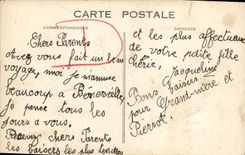 CARTE POSTALE
CORRESPONDANCE
ADRESSE
Chers Parents
Avez vous fait un beau
voyage, moi je m'amuse
beaucoup à
je pense tous les
jours à vous,
chers Parents
les baisers les plus tendres
et les plus affectueux
de votre petite fille
chérie,
Jacqueline
Bons baisers
pour Grand-mère et
Pierrot.